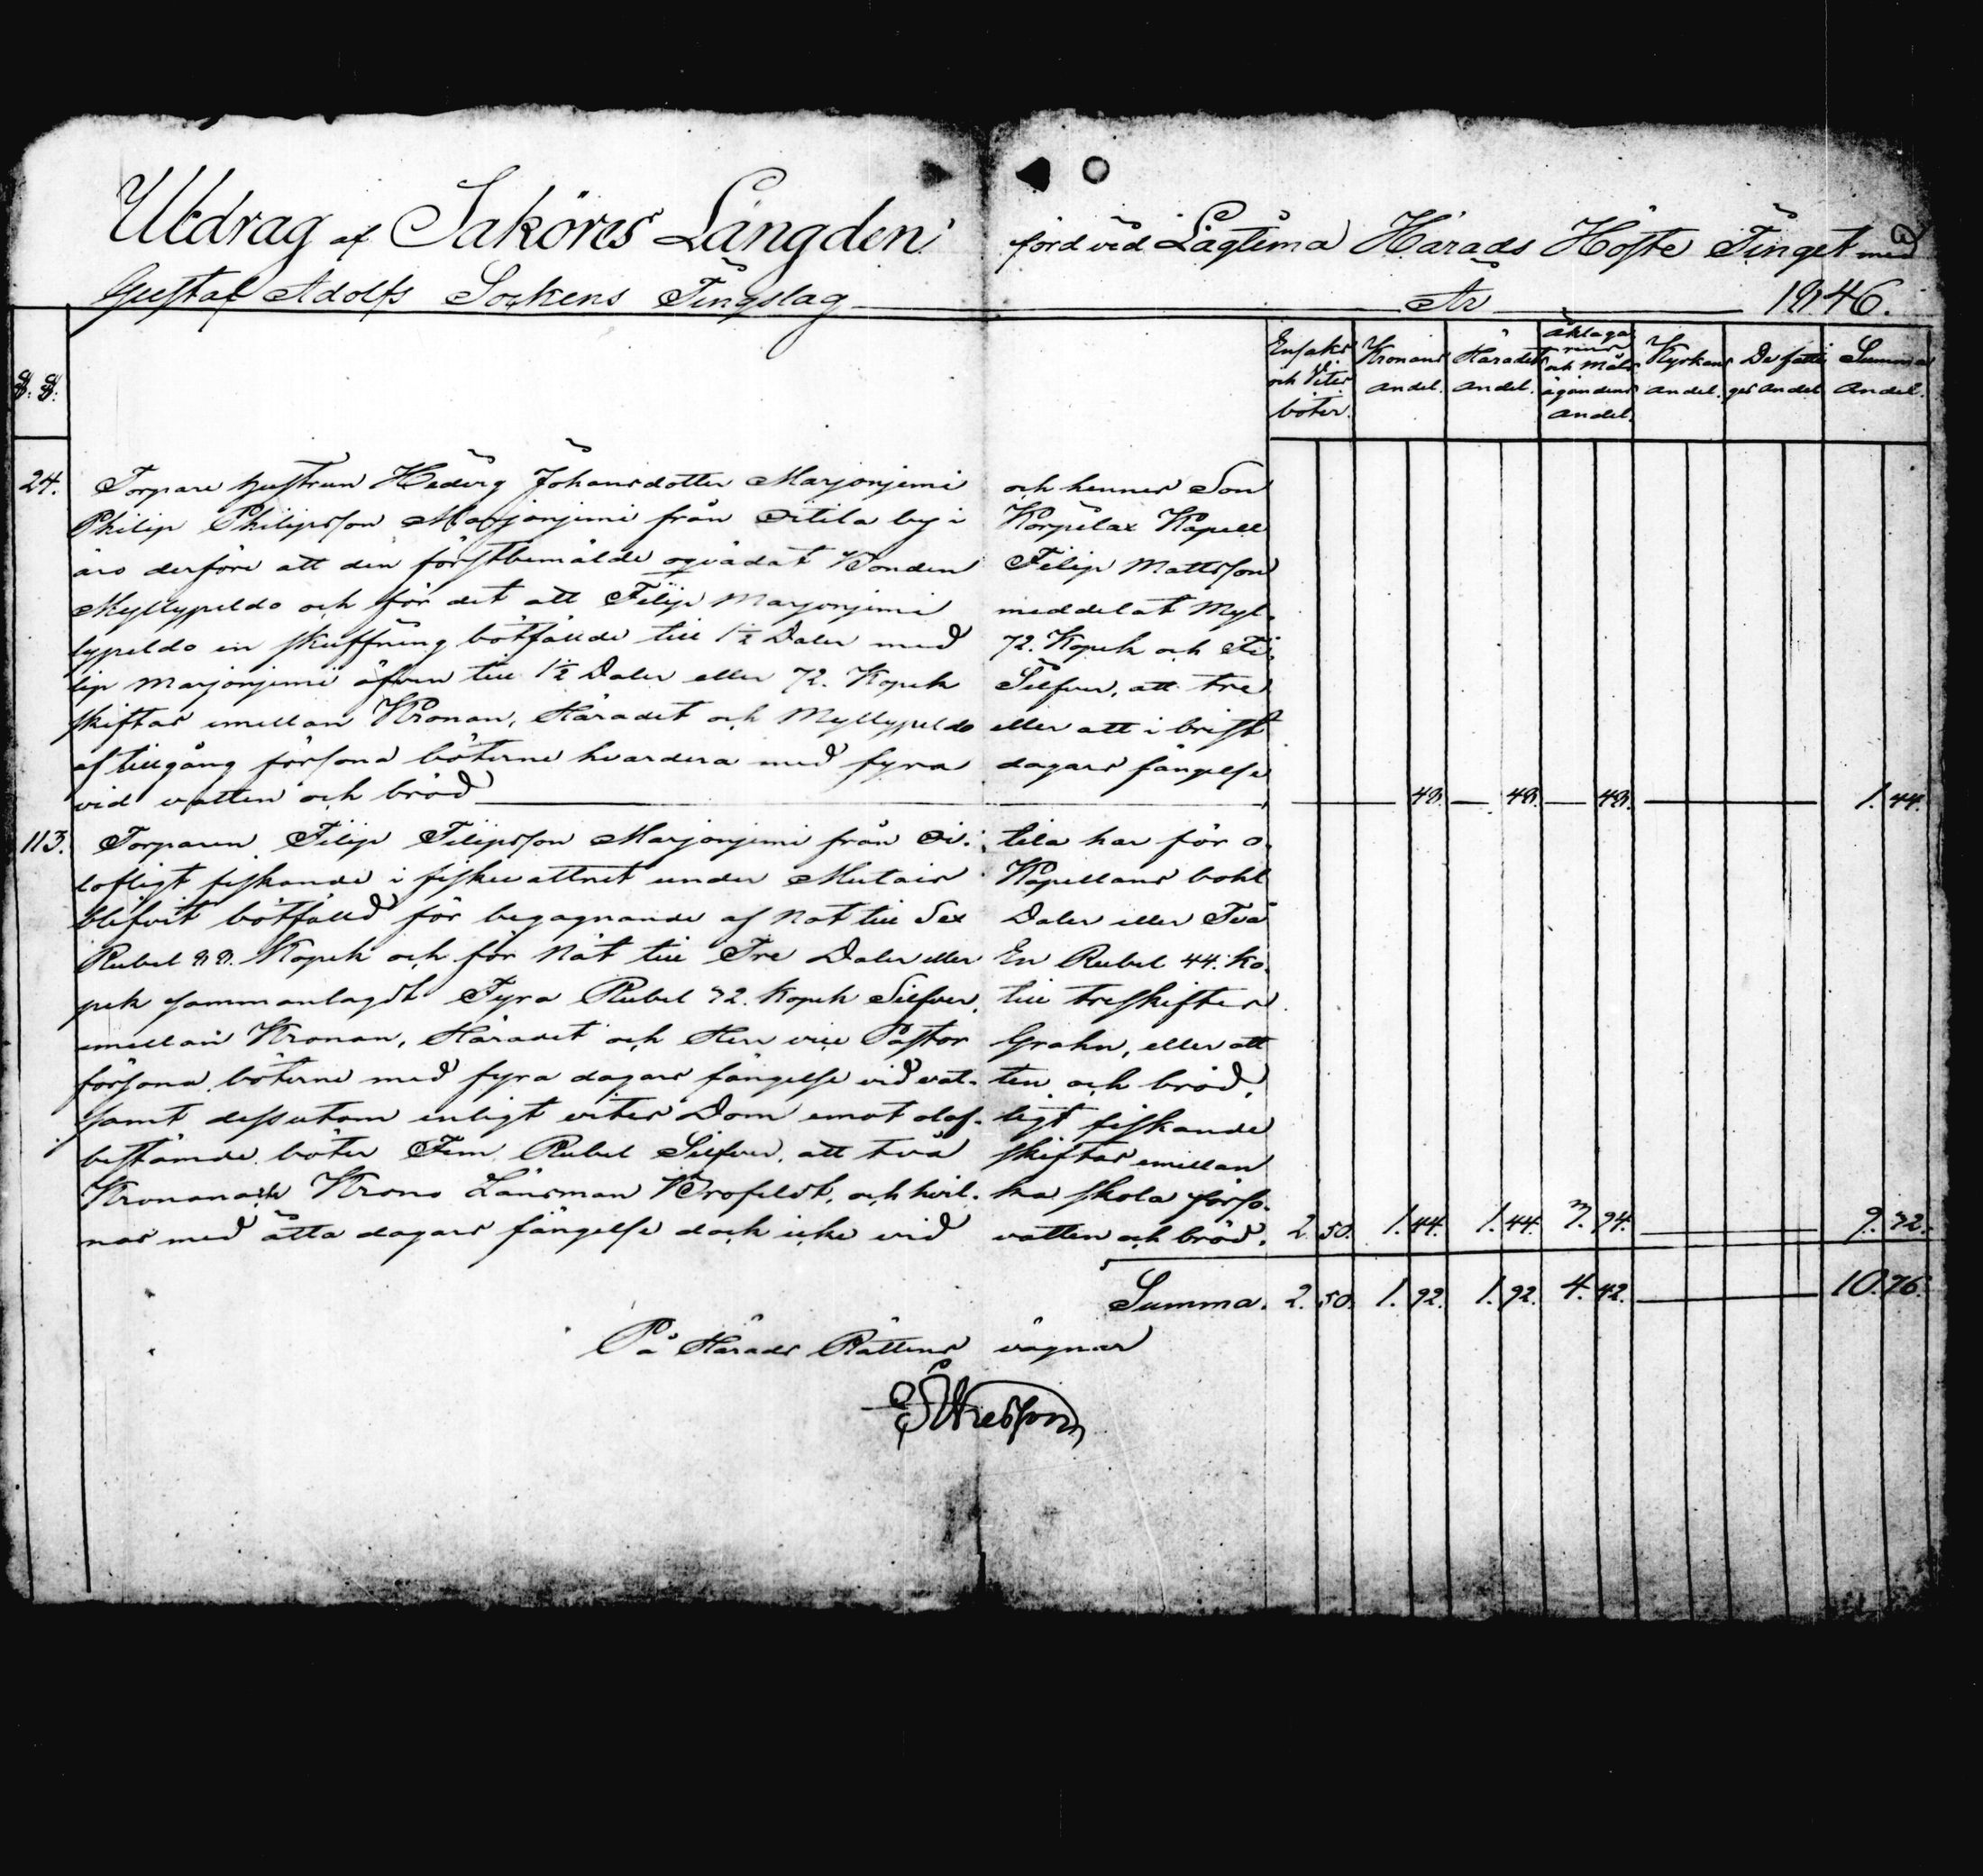 Utdrag af Saköres Längden förd vid Lagtima Härads Höste Tinget med
Gustaf Adolfs Sockens Tingslag År 1846.
§. §.
Ensaks och Vites böter.
Kronans andel.
Häradets andel.
Åklagarens och Måls ägandens andel.
Kyrkans andel.
De fattiges andel
Summa andel.
24. Torpare hustrun Hedvig Johansdotter Marjoniemi och hennes Son
Philip Philipsson Marjoniemi från Sitila by i Korpilax Kapell
äro derföre att den förstbemälde oqvädat Bonden Filip Mattsson
Myllypeldo och för det att Filip Marjoniemi meddelat Myl-
lypeldo en skuffning bötfällde till 1½ Daler med 72. Kopek och Fi-
lip Marjoniemi äfven till 1½ Daler eller 72. Kopek Silfver, att tre
skiftas emellan Kronan, Häradet och Myllypeldo eller att i brist
af tillgång försona böterne hvardera med fyra dagars fängelse
vid vatten och bröd 48. 48. 48. 1. 44.
113. Torparen Filip Filipsson Marjoniemi från Si- tila har för o-
lofligt fiskande i fiskevattnet under Kapellans bohl
blifvit bötfälld för begagnande af Not till Sex Daler eller Två
Rubel 88. Kopek och för Nät till Tre Daler eller En Rubel 44. ko-
pek sammanlagdt Fyra Rubel 32. Kopek Silfver, till treskiftes
emellan Kronan, Häradet och Herr vice Pastor Grahn, eller att
försona böterne med fyra dagars fängelse vid vat- ten och bröd,
samt dessutom enligt vites Dom emot olof- ligt fiskande
bestämde böter Fem Rubel Silfver, att två skiftas emellan
Kronan och Krono Länsman Brofeldt, och hvil- ka skola förso-
nas med åtta dagars fängelse dock icke vid vatten och bröd. 2. 50. 1. 44. 1. 44. 3. 94. 9. 32.
Summa. 2. 50. 1. 92. 1. 92. 4. 42. 10. 76.
På Härads Rättens vägnar